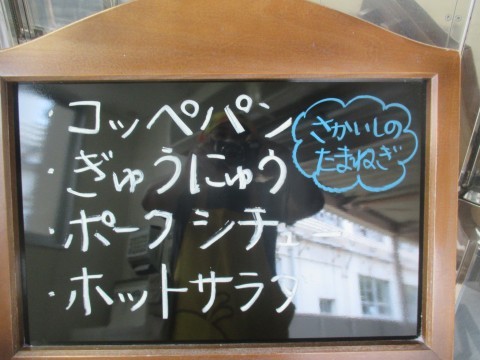 ・コッペパン
・ぎゅうにゅう
・ポークシチュー
・ホットサラダ
さかいしの
たまねぎ